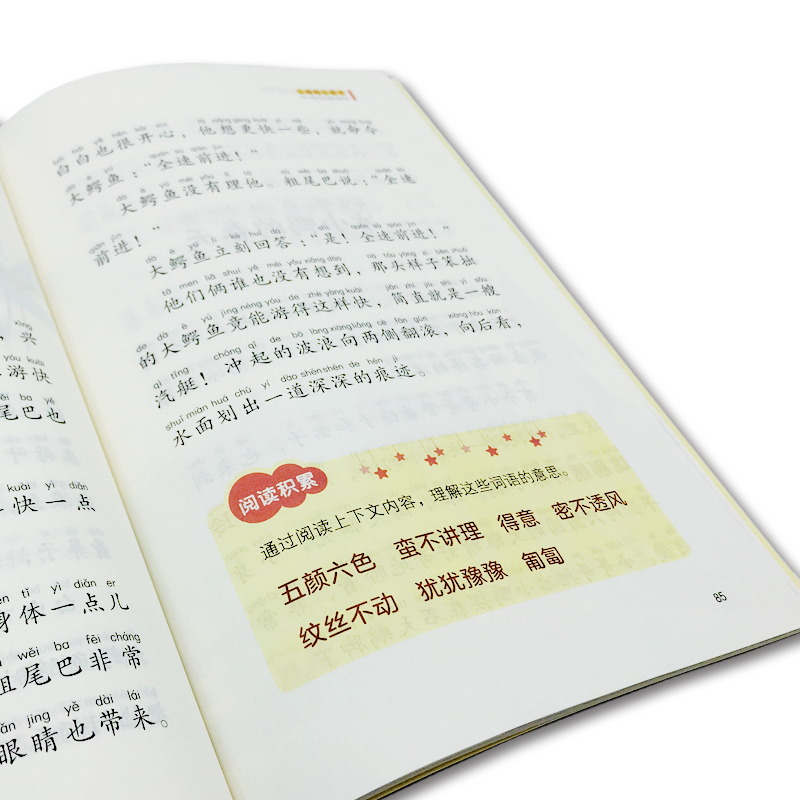 兴
游快
尾巴也
快一点
身体一点儿
粗尾巴非常
眼睛也带来。
白白也很开心，他想更快一些，就命令
大鳄鱼：“全速前进！”
大鳄鱼没有理他。粗尾巴说：“全速
前进！”
大鳄鱼立刻回答：“是！全速前进！”
他们俩谁也没有想到，那头样子笨拙
的大鳄鱼竟能游得这样快，简直就是一艘
汽艇！冲起的波浪向两侧翻滚，向后看，
水面划出一道深深的痕迹。
阅读积累
通过阅读上下文内容，理解这些词语的意思。
五颜六色 蛮不讲理 得意 密不透风
纹丝不动 犹犹豫豫 匍匐
85